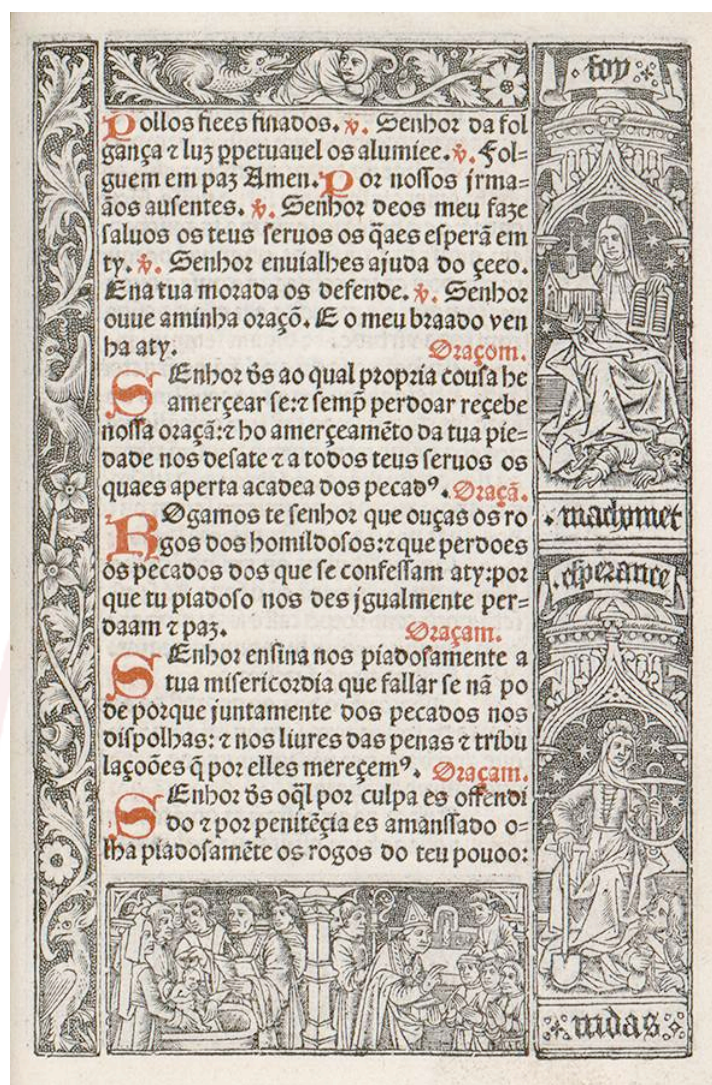 Pollos fiees finados. ℣. Senhor da fol
gança ⁊ luz ꝑpetuauel os alumiee. ℣. Fol-
guem em paz Amen. Por nossos jrma-
ãos ausentes. ℣. Senhor deos meu faze
saluos os teus seruos os q̃aes esperã em
ty. ℣. Senhor enuialhes ajuda do çeeo.
Ena tua morada os defende. ℣. Senhor
ouue aminha oraçõ. E o meu braado ven
ha aty. Oraçom.
SEnhor d̃s ao qual propria cousa he
amerçear se: ⁊ semp̃ perdoar reçebe
nossa oraçã: ⁊ ho amerçeamẽto da tua pie-
dade nos desate ⁊ a todos teus seruos os
quaes aperta acadea dos pecadꝰ. Oraçã.
ROgamos te senhor que ouças os ro
gos dos homildosos: ⁊ que perdoes
os pecados dos que se confessam aty: por
que tu piadoso nos des jgualmente per-
daam ⁊ paz. Oraçam.
SEnhor ensina nos piadosamente a
tua misericordia que fallar se nã po
de porque juntamente dos pecados nos
dispolhas: ⁊ nos liures das penas ⁊ tribu
laçoões q̃ por elles mereçemꝰ. Oraçam.
SEnhor d̃s oq̃l por culpa es offendi
do ⁊ por penitẽçia es amanssado o-
lha piadosamẽte os rogos do teu pouoo:
foy
machomet
esperance
iudas